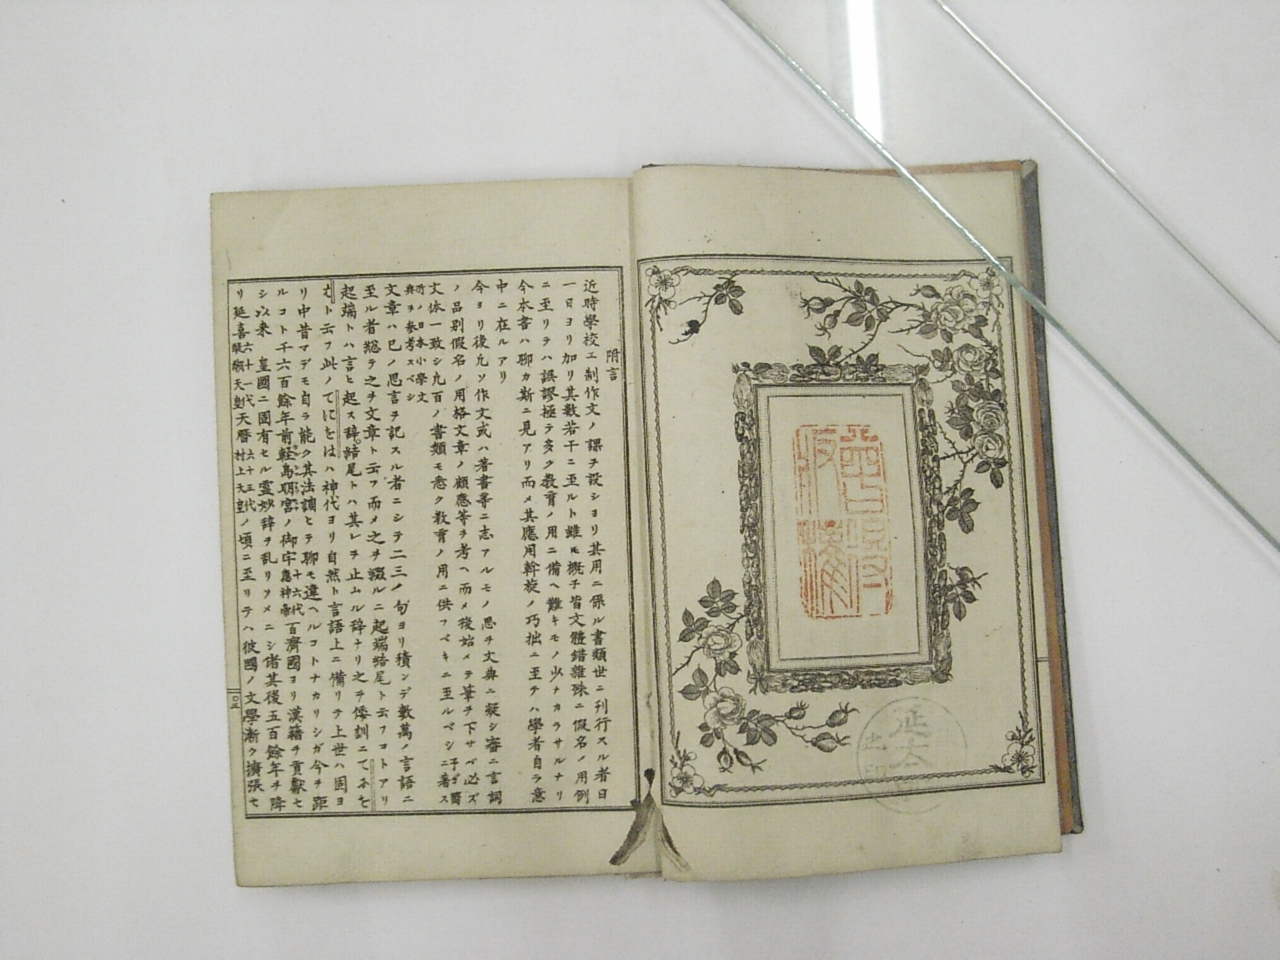 附言
近時學校ニ制作文ノ課ヲ設シヨリ其用ニ係ル書類世ニ刊行スル者日
一日ヨリ加リ其數若干ニ至ルト雖モ概子皆文體錯雜殊ニ假名ノ用例
ニ至リテハ誤謬極テ多ク教育ノ用ニ備ヘ難キモノ少ナカラサルナリ
今本書ハ聊カ斯ニ見アリ而メ其應用斡旋ノ巧拙ニ至テハ學者自ラ意
中ニ在ルアリ
今ヨリ後凡ソ作文或ハ著書等ニ志アルモノ思ヲ文典ニ凝シ審ニ言詞
ノ品別假名ノ用格文章ノ顧應等ヲ考ヘ而メ後始メテ筆ヲ下サバ必ズ
文体一致シ九百ノ書類モ悉ク教育ノ用ニ供フベキニ至ルベシ
所ノ日本小學文
典ヲ參考スベシ
文章ハ已ノ思言ヲ記スル者ニシテ二三ノ句ヨリ積ンデ數萬ノ言語ニ
至ル者懇テ之ヲ文章ト云フ而メ之ヲ綴ルニ起端結尾ト云フコトアリ
起端トハ言ヒ起ス辞結尾トハ其レヲ止ムル辞ナリ之ヲ倭訓ニてふを
はト云フ此ノてにをはハ神代ヨリ自然ト言語上ニ備リテ上世ハ固ヨ
リ中昔マデモ自ラ能ク其法調ヒテ聊モ違ヘルコトナカリシガ今ヲ距
ルコト千六百餘年前輕島明宮ノ御宇應神帝十六代百濟國ヨリ漢籍ヲ貢獻セ
シ以来 皇國ニ固有セル霊妙辞ヲ乱リソメニシ偖其後五百餘年ヲ降
リ延喜六十一代醍醐天皇天暦六十三代村上天皇ノ頃ニ至リテハ彼國ノ文學漸ク擴張セ